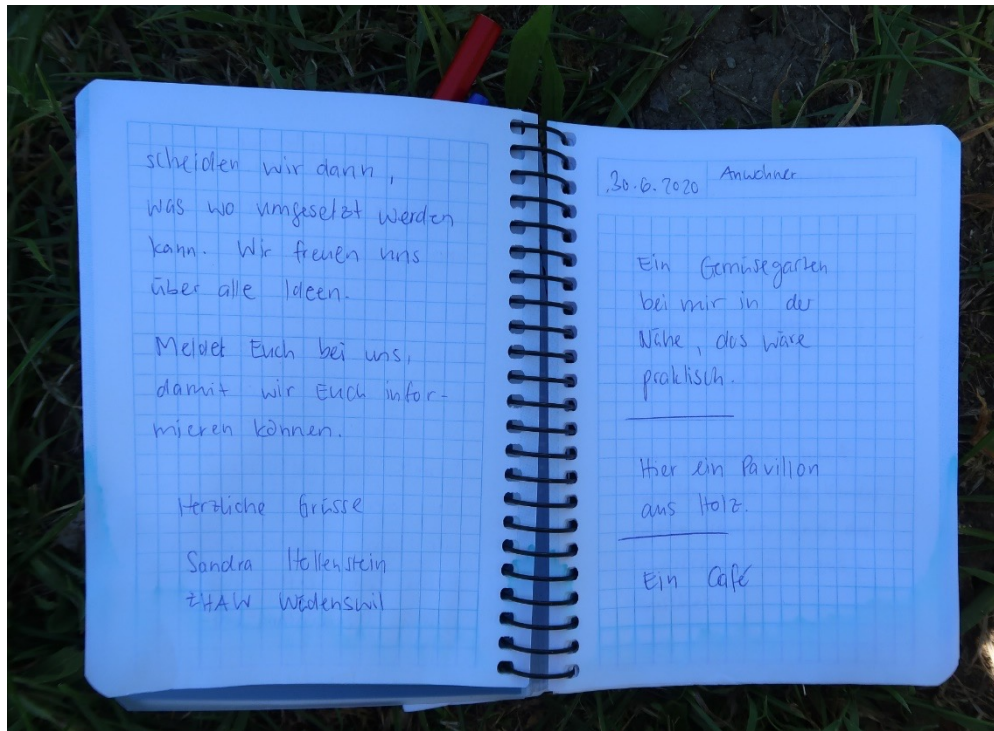 scheiden wir dann,
was wo umgesetzt werden
kann. Wir freuen uns
über alle Ideen.
Meldet Euch bei uns,
damit wir Euch infor-
mieren können.
Herzliche Grüsse
Sandra Hellenstein
ZHAW Wädenswil
30.6.2020 Anwohner
Ein Gemüsegarten
bei mir in der
Nähe, das wäre
praktisch.
Hier ein Pavillon
aus Holz.
Ein Café